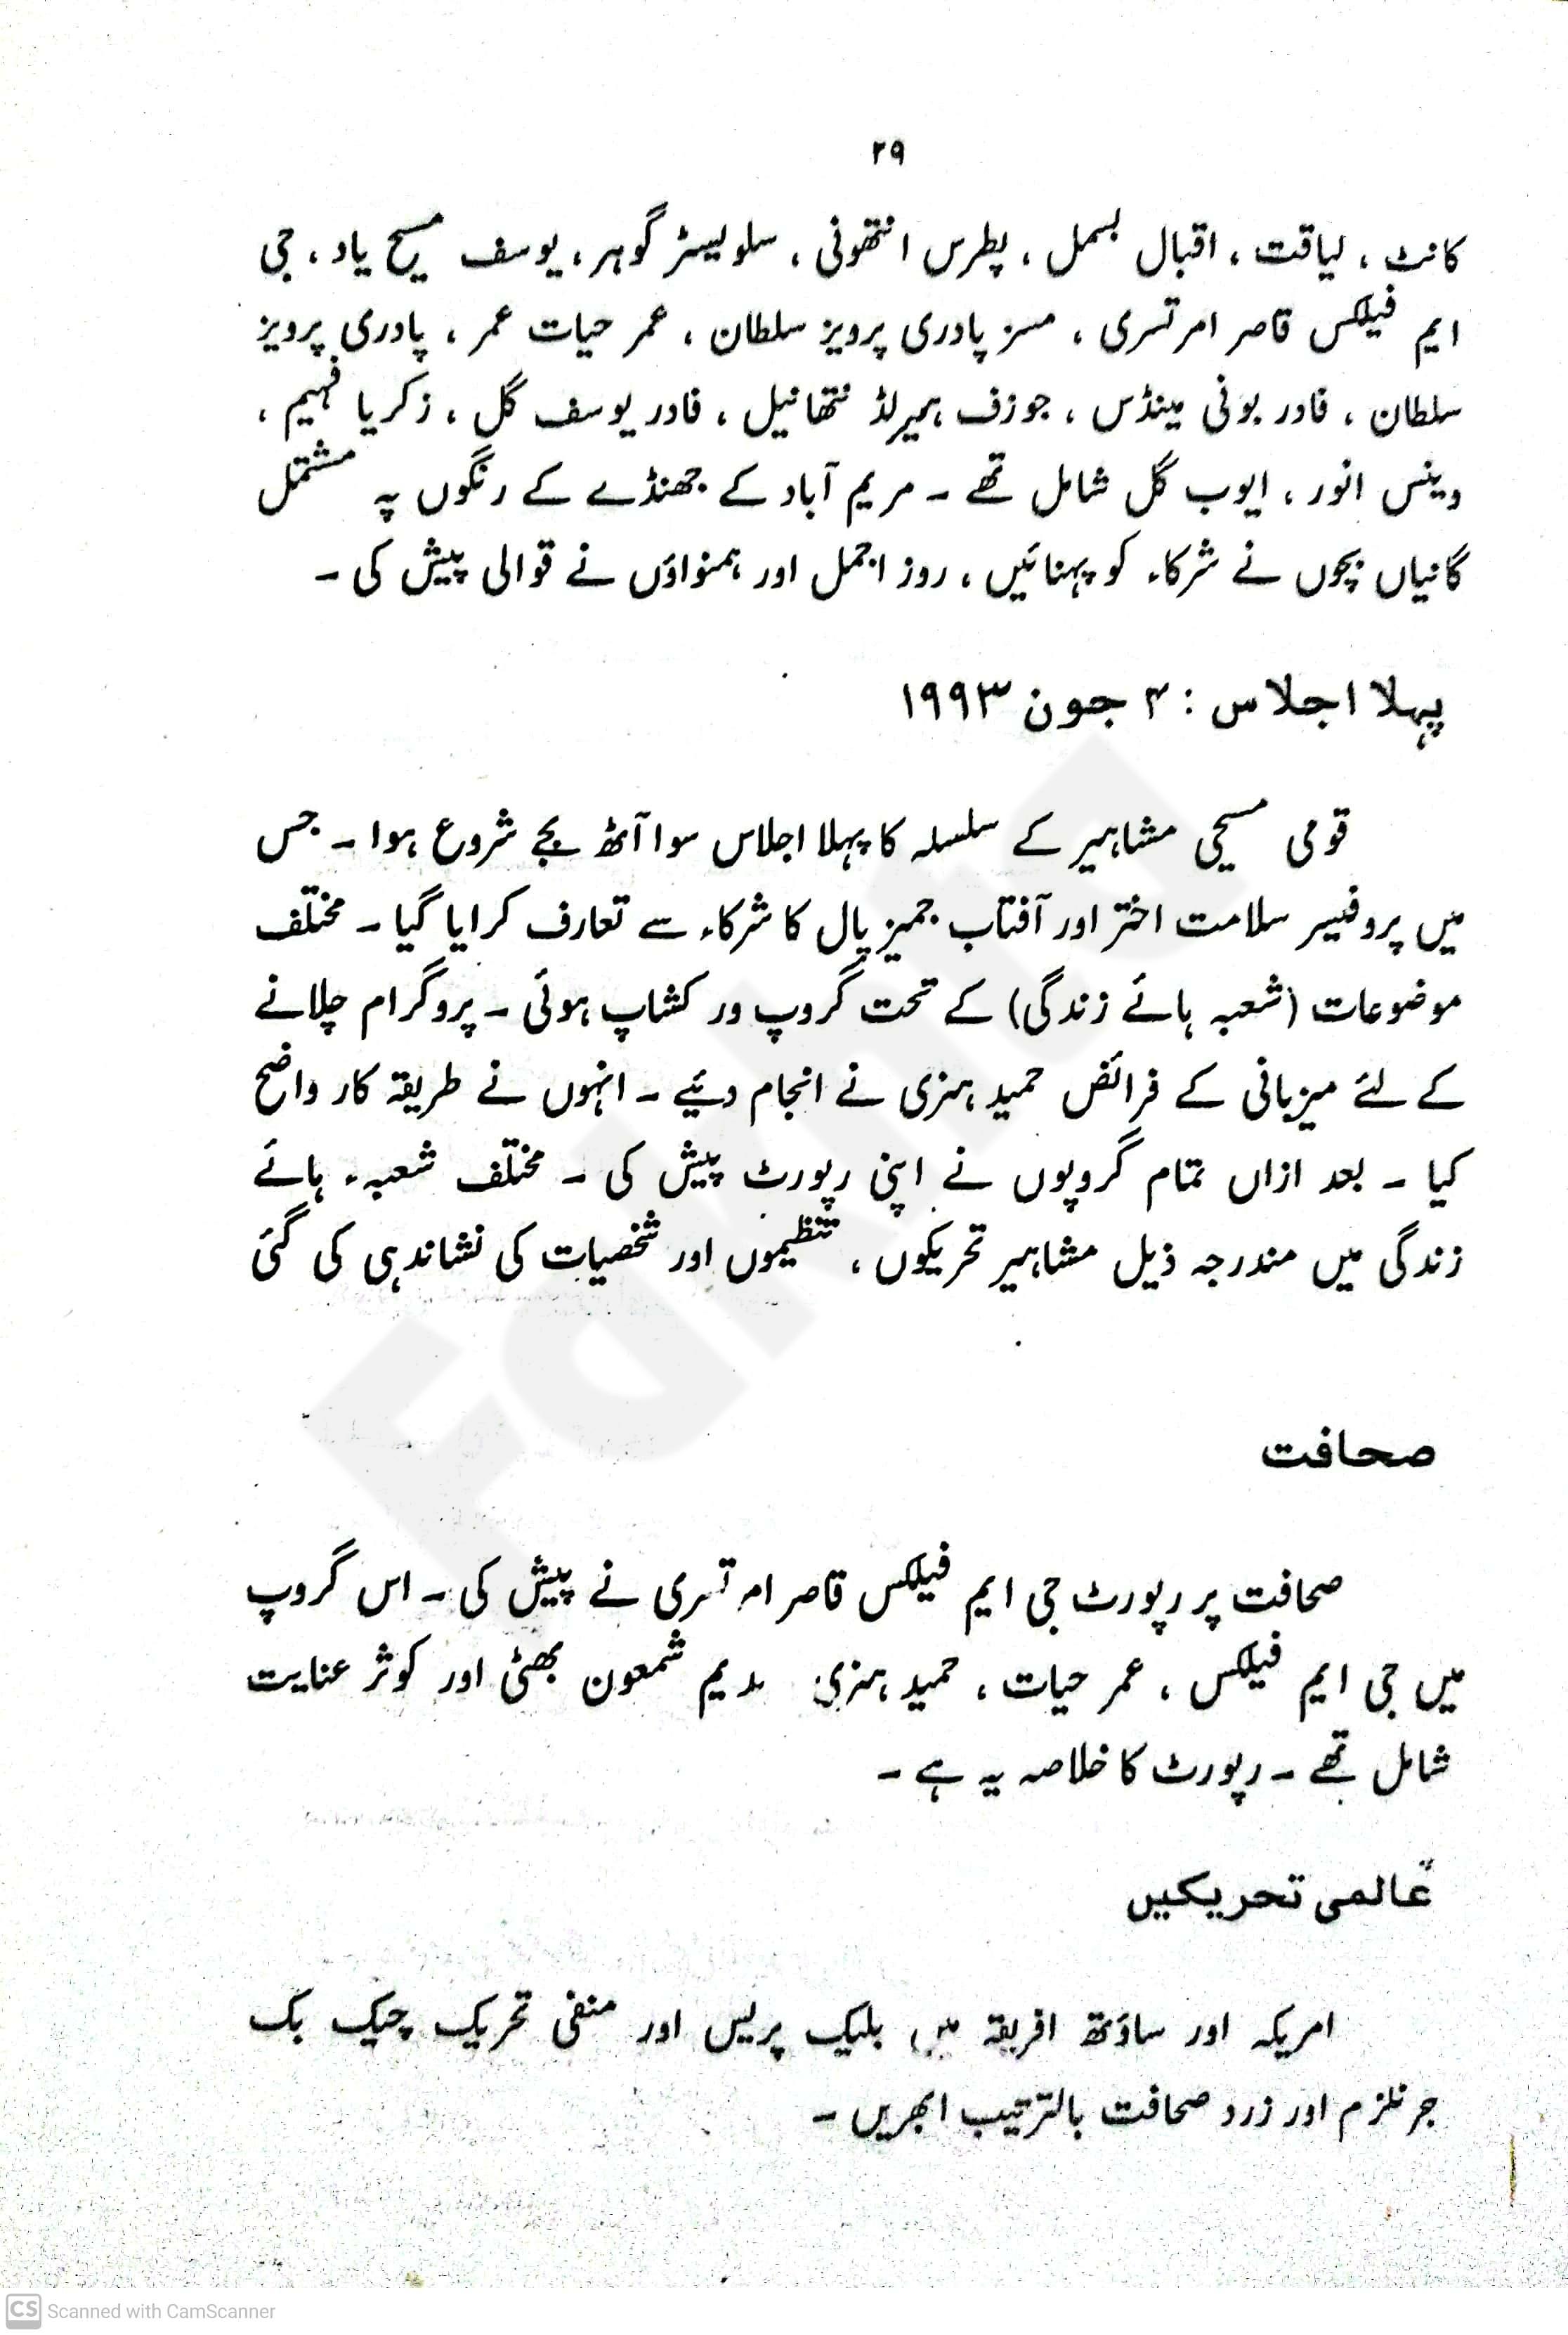 ۲۹
کانٹ ، لیاقت ، اقبال بسمل ، پطرس انتھونی ، سلویسٹر گوہر ، یوسف مسیح یاد ، جی
ایم فیلکس قاصر امرتسری ، مسز پادری پرویز سلطان ، عمر حیات عمر ، پادری پرویز
سلطان ، فادر بونی مینڈس ، جوزف ہمیرلڈ نتھانیل ، فادر یوسف گل ، زکریا فہیم ،
وینس انور ، ایوب گل شامل تھے ۔ مریم آباد کے جھنڈے کے رنگوں پہ مشتمل
گانیاں بچوں نے شرکاء کو پہنائیں ، روز اجمل اور ہمنواؤں نے قوالی پیش کی ۔
پہلا اجلاس : ۴ جون ۱۹۹۳
قومی مسیحی مشاہیر کے سلسلہ کا پہلا اجلاس سوا آٹھ بجے شروع ہوا ۔ جس
میں پروفیسر سلامت اختر اور آفتاب جمیز پال کا شرکاء سے تعارف کرایا گیا ۔ مختلف
موضوعات (شعبہ ہائے زندگی) کے تحت گروپ ور کشاپ ہوئی ۔ پروگرام چلانے
کے لئے میزبانی کے فرائض حمید ہنری نے انجام دئیے ۔ انہوں نے طریقہ کار واضح
کیا ۔ بعد ازاں تمام گروپوں نے اپنی رپورٹ پیش کی ۔ مختلف شعبہء ہائے
زندگی میں مندرجہ ذیل مشاہیر تحریکوں ، تنظیموں اور شخصیات کی نشاندہی کی گئی
صحافت
صحافت پر رپورٹ جی ایم فیلکس قاصر امرتسری نے پیش کی ۔ اس گروپ
میں جی ایم فیلکس ، عمر حیات ، حمید ہنری ندیم شمعون بھٹی اور کوثر عنایت
شامل تھے ۔ رپورٹ کا خلاصہ یہ ہے ۔
عالمی تحریکیں
امریکہ اور ساؤتھ افریقہ میں بلیک پریس اور منفی تحریک چیک بک
جرنلزم اور زرد صحافت بالترتیب ابھریں ۔
CS Scanned with CamScanner